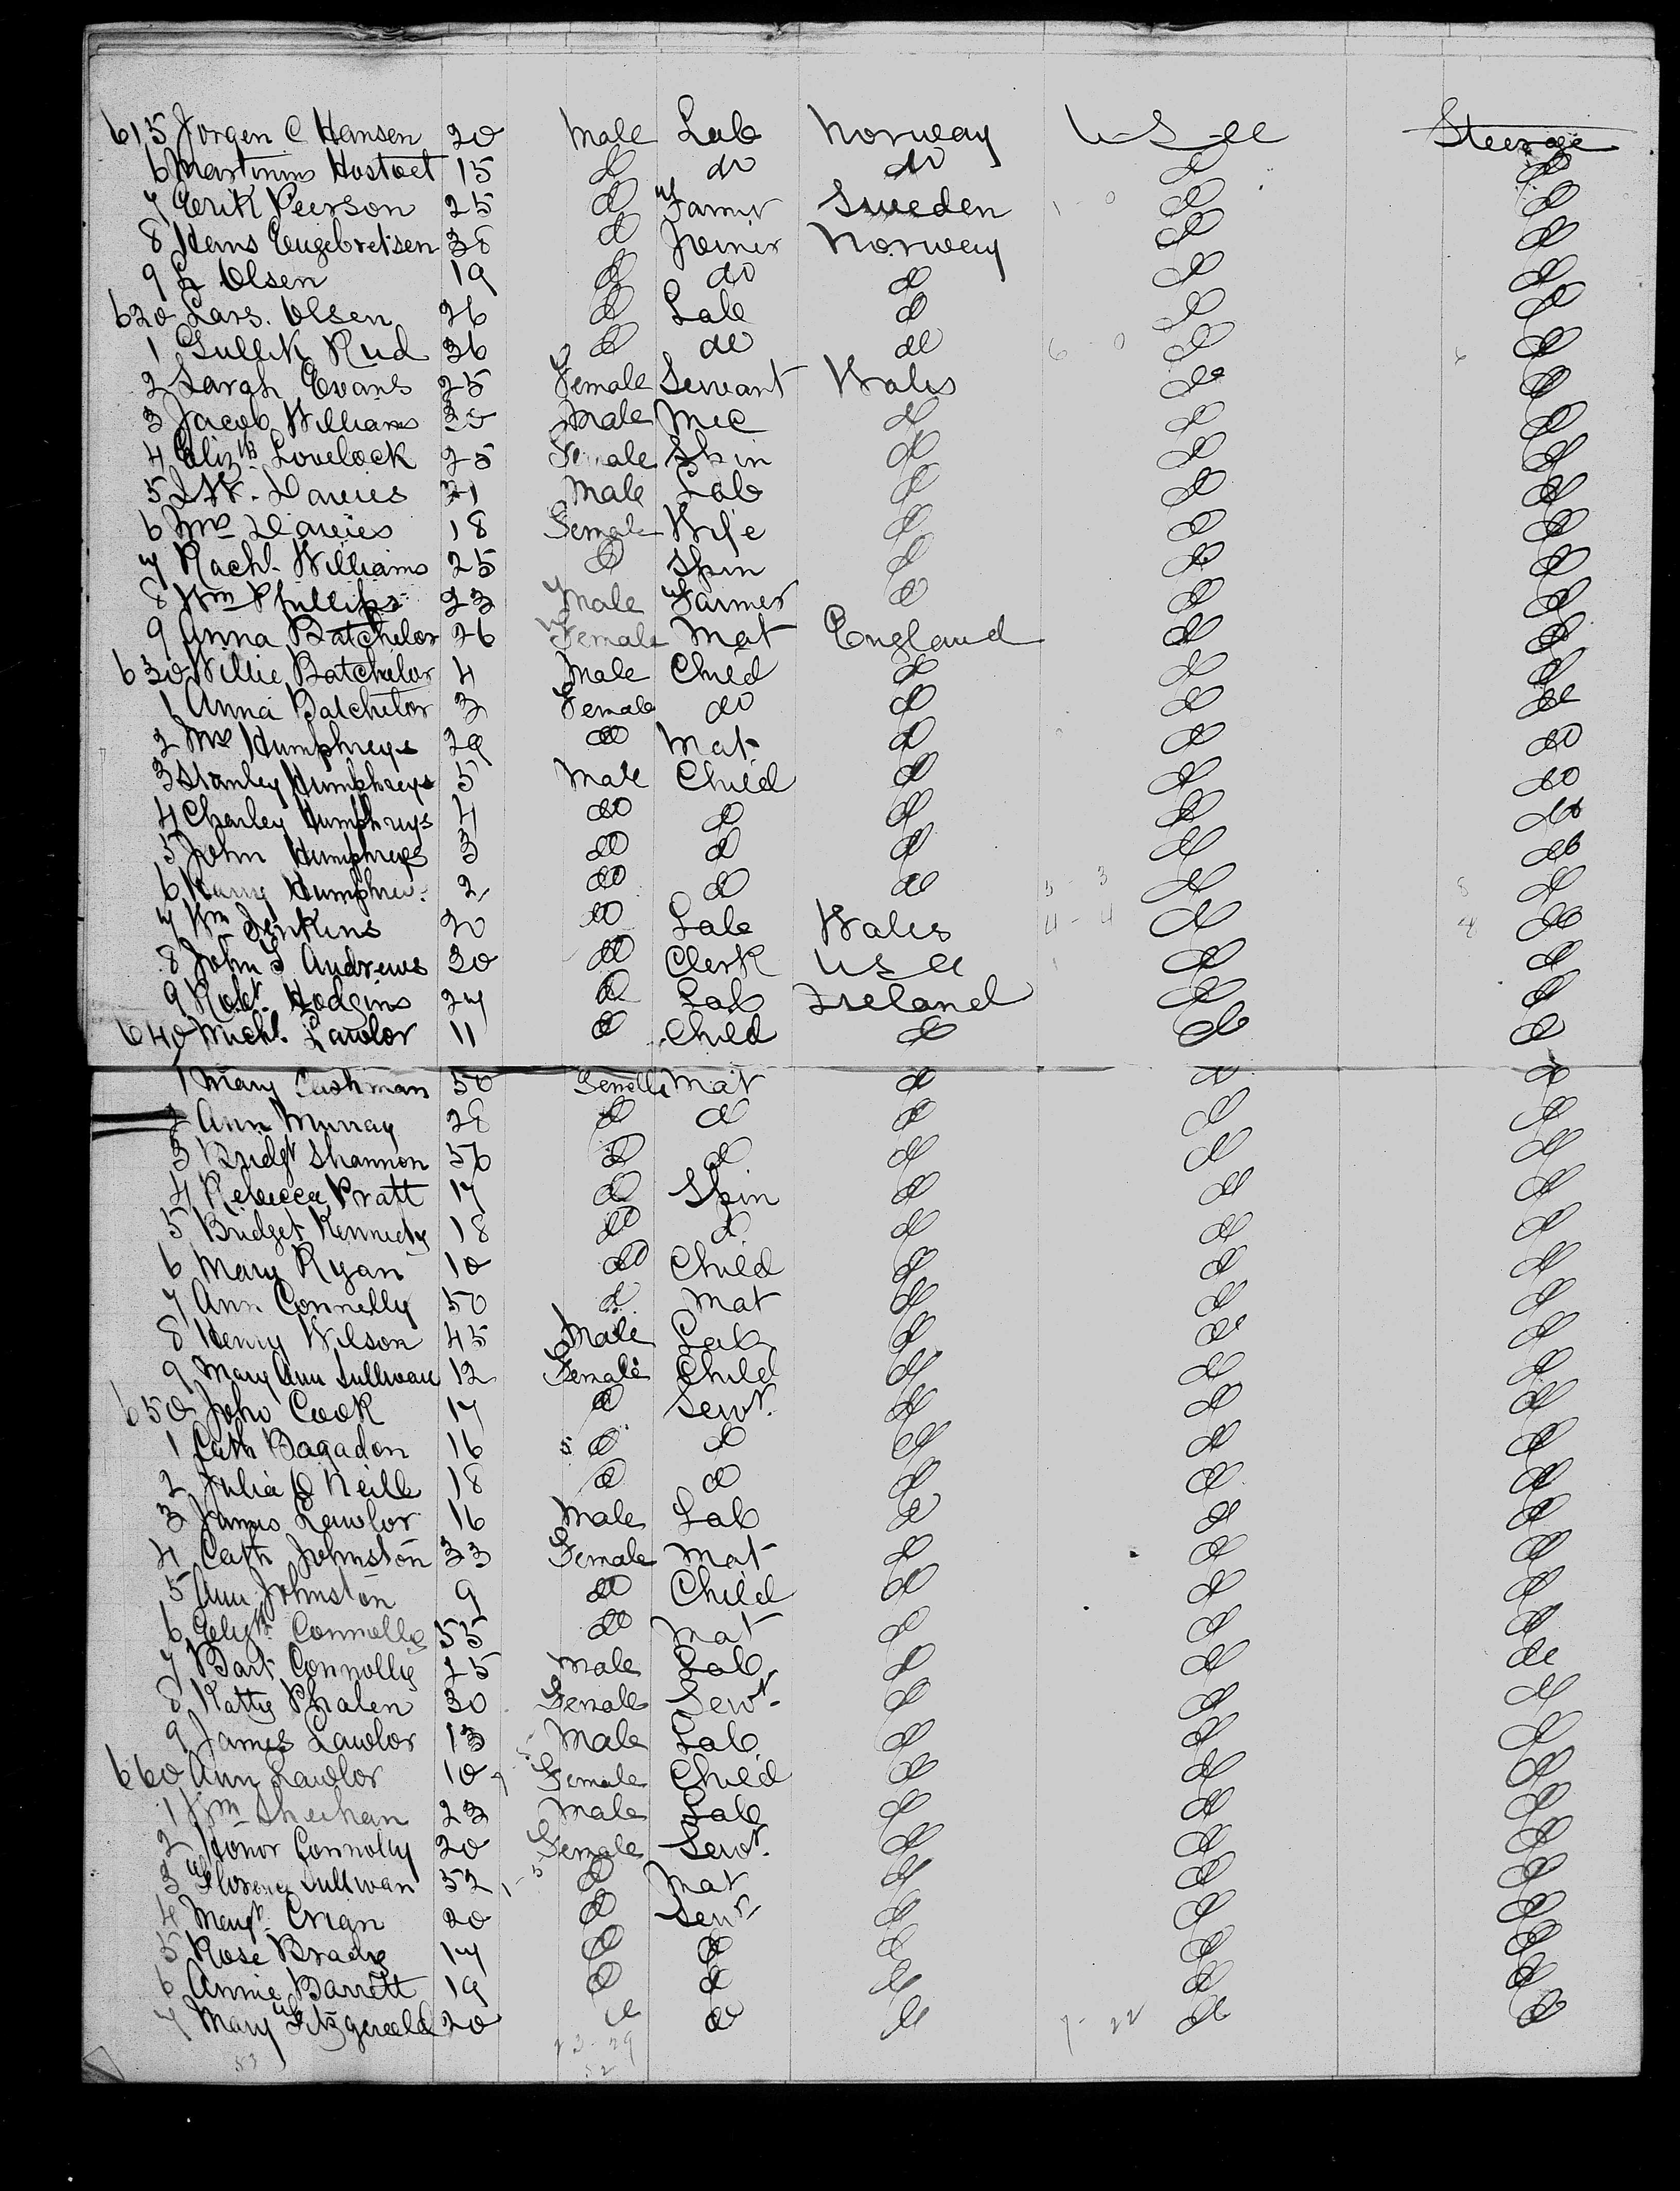 615 Jorgen C Hansen 20 Male Lab Norway U S A Steerage
6 Martinus Hostvet 15 do do do do do
7 Erik Peerson 25 do Farmer Sweden do do
8 Hans Engebretsen 38 do Joiner Norway do do
9 L Olsen 19 do do do do do
620 Lars. Olsen 26 do Lab do do do
1 Gullik Rud 36 do do do do do
2 Sarah Evans 25 Female Servant Wales do do
3 Jacob Williams Male Mec do do do
4 Elizth Lovelock 25 Female Spin do do do
5 Davies 21 Male Lab do do do
6 Mrs Davies 18 Female Wife do do do
7 Rachl. Williams 25 do Spin do do do
8 Wm Phillips 23 Male Farmer do do do
9 Anna Batchelor 26 Female Mat England do do
630 Willie Batchelor 4 Male Child do do do
1 Anna Batchelor 3 Female do do do do
2 Mrs Humphreys 29 do Mat do do do
3 Stanley Humphreys 5 Male Child do do do
4 Charley Humphreys 4 do do do do do
5 John Humphreys 3 do do do do do
6 Harry Humphrey 2 do do do do do
7 Wm Jenkins 20 do Lab Wales do do
8 John S Andrews 30 do Clerk U S A do do
9 Robt. Hodgins 27 do Lab Ireland do do
640 Michl. Lawlor 11 do Child do do do
1 Mary Cushman 50 Female Mat do do do
2 Ann Murray 28 do do do do do
3 Bridgt Shannon 56 do do do do do
4 Rebecca Pratt 17 do Spin do do do
5 Bridget Kennedy 18 do do do do do
6 Mary Ryan 10 do Child do do do
7 Ann Connelly 50 do Mat do do do
8 Henry Wilson 45 Male Lab do do do
9 Mary Ann Sullivan 12 Female Child do do do
650 Joho Cook 17 do Servt. do do do
1 Cath Bagadon 16 do do do do do
2 Julia O Neill 18 do do do do do
3 James Lawlor 16 Male Lab do do do
4 Cath Johnston 33 Female Mat do do do
5 Ann Johnston 9 do Child do do do
6 Connolly 55 do Mat do do do
7 Bart Connolly 25 Male Lab do do do
8 Katty Phalen 30 Female Servt. do do do
9 James Lawlor 13 Male Lab do do do
660 Ann Lawlor 10 Female Child do do do
1 Wm Sheehan 23 Male Lab do do do
2 Honor Connolly 20 Female Servt. do do do
3 Florence Sullivan 52 do Mat do do do
4 Margt. Crign 20 do Servt do do do
5 Rose Brady 17 do do do do do
6 Annie Barrett 19 do do do do do
7 Mary Fitzgerald 20 do do do 7 - 22 do do
53 23 - 29
52